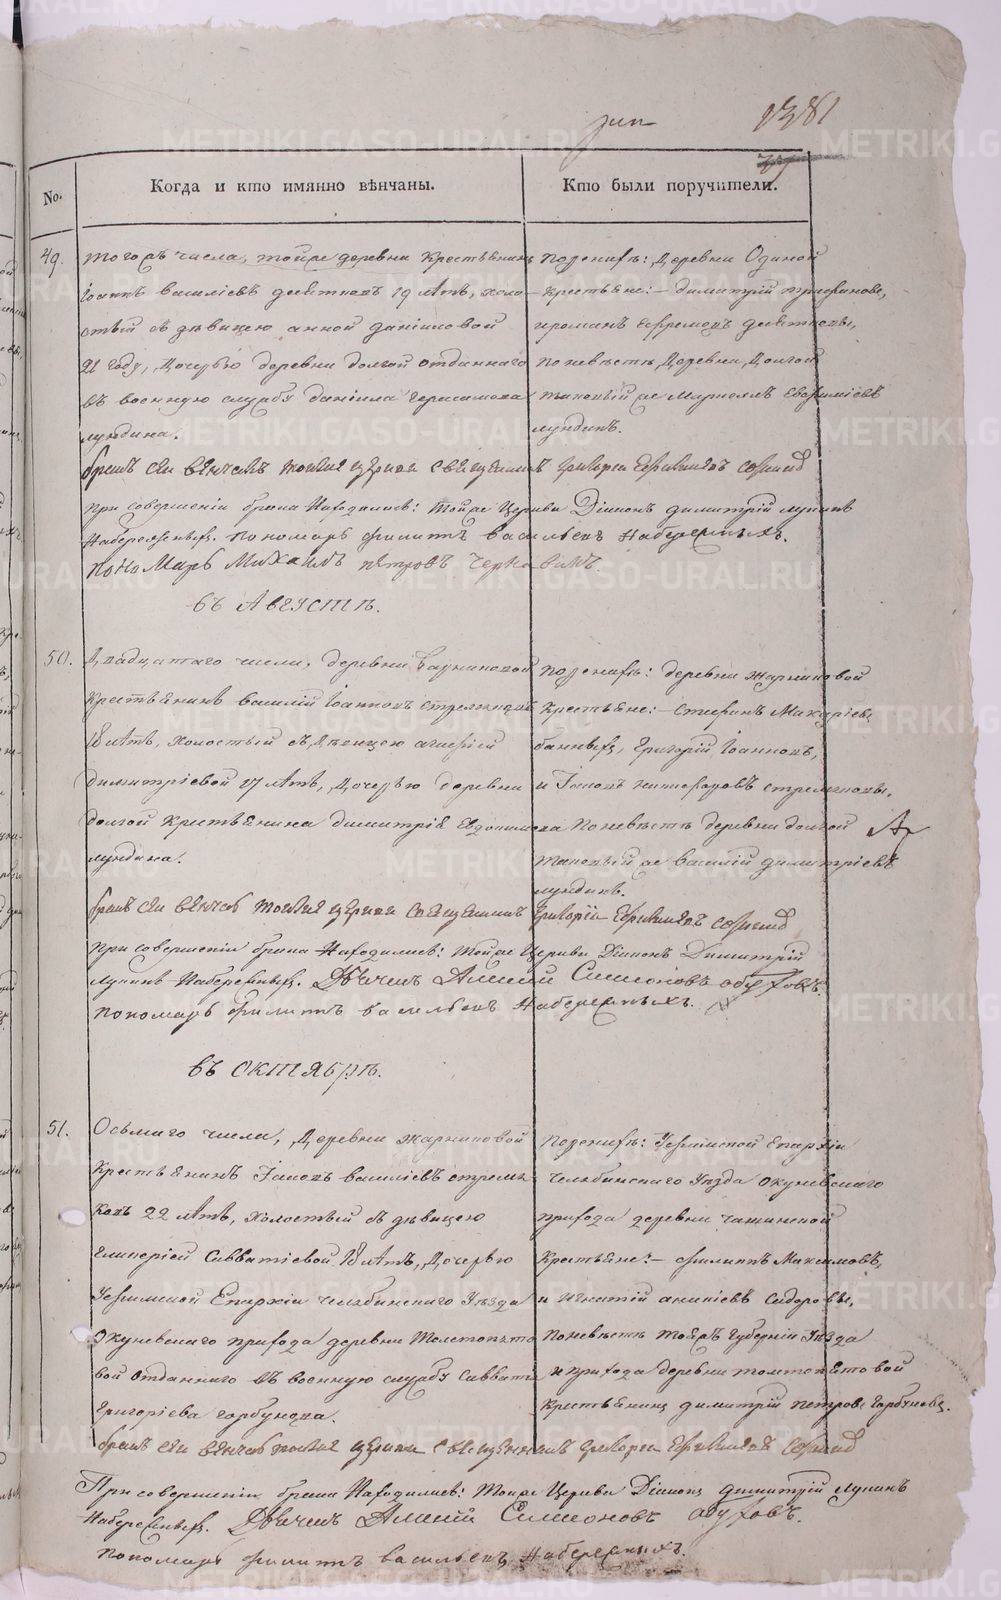 1381
No.
Когда и кто имянно вѣнчаны.
Кто были поручители.
49.
тогожъ числа, тойже деревни крестьянинъ
Іоаннъ василіевъ девятковъ 19 лѣтъ, холо-
стый съ дѣвицею анной даніиловой
21 году, дочерью деревни долгой отданнаго
въ военную службу даніила герасимова
лундина.
поженихѣ: деревни Одиной
крестьяне: димитрій трифановъ,
и романъ ефремовъ девятковы,
поневѣстѣ деревни долгой
таковый же Маркеллъ Евфиміевъ
лундинъ.
бракъ сей вѣнчалъ тоя же церкви священникъ григорей
при совершеніи брака находились: тойже Церкви Діаконъ димитрій лукинъ
Набережныхъ. пономарь филиппъ васильевъ Набережныхъ.
пономарь Михаилъ петровъ
въ Августѣ.
50.
двадцатаго числа, деревни
крестьянинъ василій Іоанновъ стрежневъ
18 лѣтъ, холостый съ дѣвицею
димитріевой 17 лѣтъ, дочерью деревни
долгой крестьянина димитрія Евдокимова
лундина.
поженихѣ: деревни жарниковой
крестьяне: стефанъ Макаріевъ
григорій Іоанновъ,
и Іаковъ никифоровъ
поневѣстѣ деревни долгой
таковый же василій димитріевъ
лундинъ.
бракъ сей вѣнчалъ тоя же церкви священникъ григорій
при совершеніи брака находились: тойже Церкви Діаконъ Димитрій
лукинъ Набережныхъ. Дьячекъ Алексій Симеоновъ обуховъ.
пономарь филиппъ васильевъ Набережныхъ.
въ октябрѣ.
51.
Осьмаго числа, деревни жарниковой
крестьянинъ Іаковъ василіевъ
22 лѣтъ, холостый съ дѣвицею
гликеріей Савватіевой 18 лѣтъ, дочерью
Уфимской Епархіи челябинскаго Уѣзда
окуневскаго прихода деревни
вой отданнаго въ военную службу Савватія
григоріева горбунова.
поженихѣ: Уфимской Епархіи
челябинскаго Уѣзда окуневскаго
прихода деревни
крестьяне: филиппъ Максимовъ,
и игнатій ананіевъ сидоровы,
поневѣстѣ тояжъ губерніи Уѣзда
и прихода деревни
крестьянинъ димитрій петровъ горбуновъ.
бракъ сей вѣнчалъ тоя же церкви священникъ григорей
При совершеніи брака находились: тойже Церкви Діаконъ димитрій лукинъ
Набережныхъ. Дьячекъ Алексій Симеоновъ обуховъ.
пономарь филиппъ васильевъ Набережныхъ.
METRIKI.GASO-URAL.RU